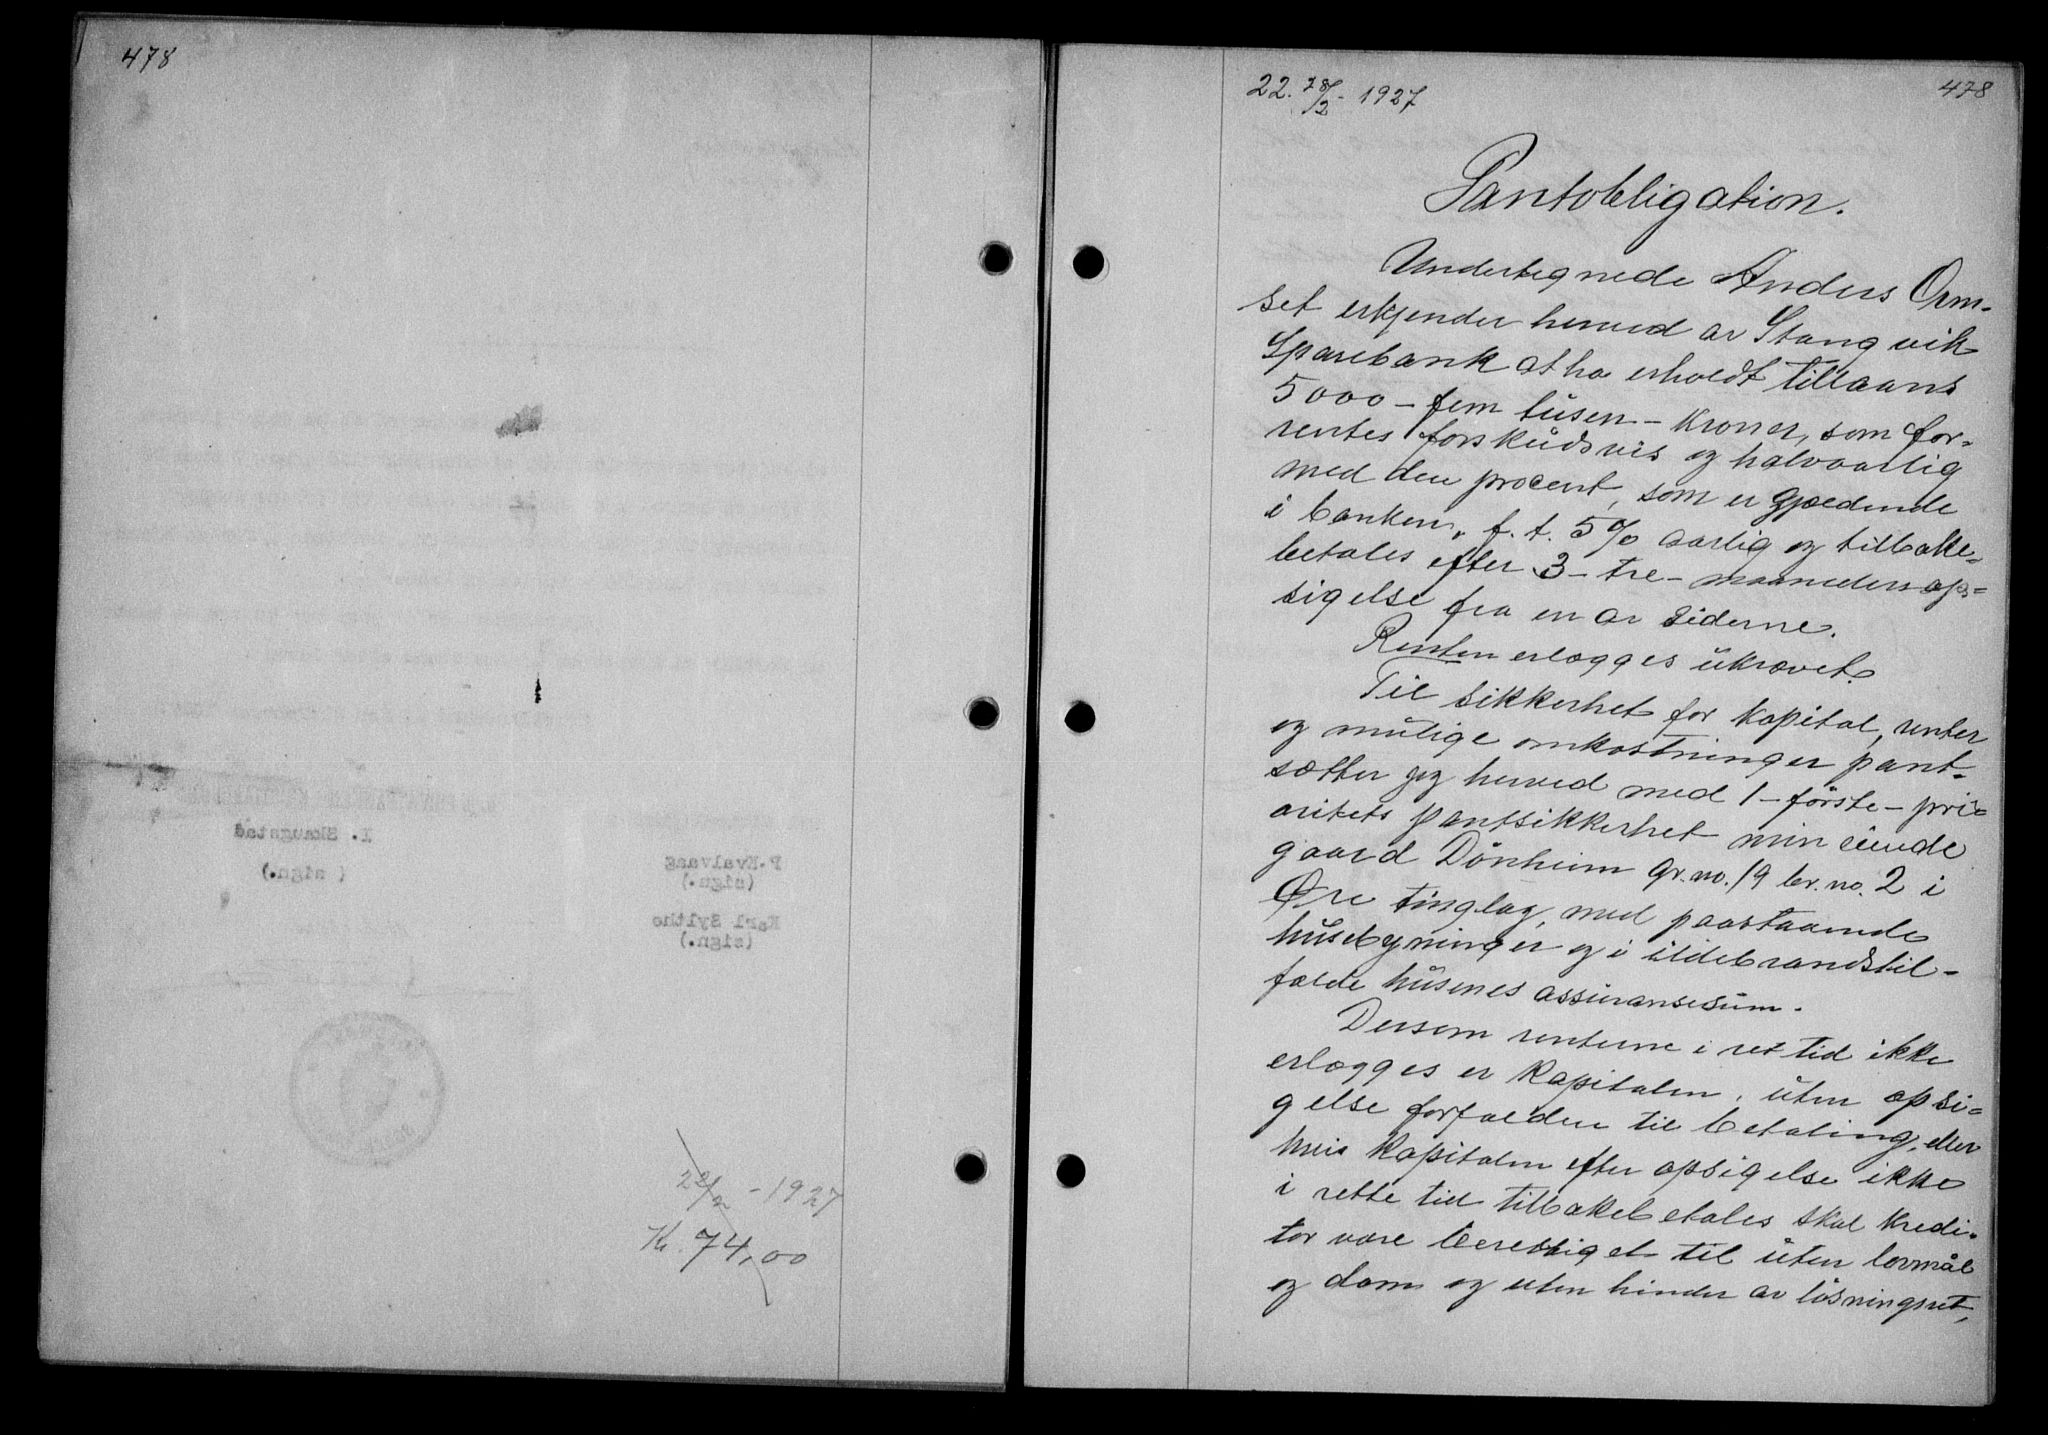 478
I. Skaugstad
(sign.)
P. Kvalvaag
(sign.)
Karl Syltho
(sign.)
22/2 - 1927
Kr. 74,00
22. 28/2 - 1927
478
Pantobligation.
Undertegnede Anders Orm-
set erkjender herved av Stangvik
Sparebank at ha erholdt tillaans
5000 - fem tusen - kroner, som for-
rentes forskudsvis og halvaarlig
med den procent, som er gjældende
i banken, f. t. 5% aarlig og tilbake-
betales efter 3 - tre - maaneders op-
sigelse fra en av siderne.
Renten erlægges ukrævet.
Til sikkerhet for kapital, renter
og mulige omkostninger pant-
sætter jeg herved med 1 - første - pri-
oritets pantsikkerhet min eiende
gaard Dønheim gr. no. 19 br. no. 2 i
Øre tinglag, med paastaaende
husebygninger og i ildebrandstil-
fælde husenes assuransesum.
Dersom renterne i ret tid ikke
erlægges er kapitalen, uten opsi-
gelse forfalden til betaling, eller
hvis kapitalen efter opsigelse ikke
i rette tid tilbakebetales skal kredi-
tor være berettiget til uten lovmål
og dom og uten hinder av løsningsret,